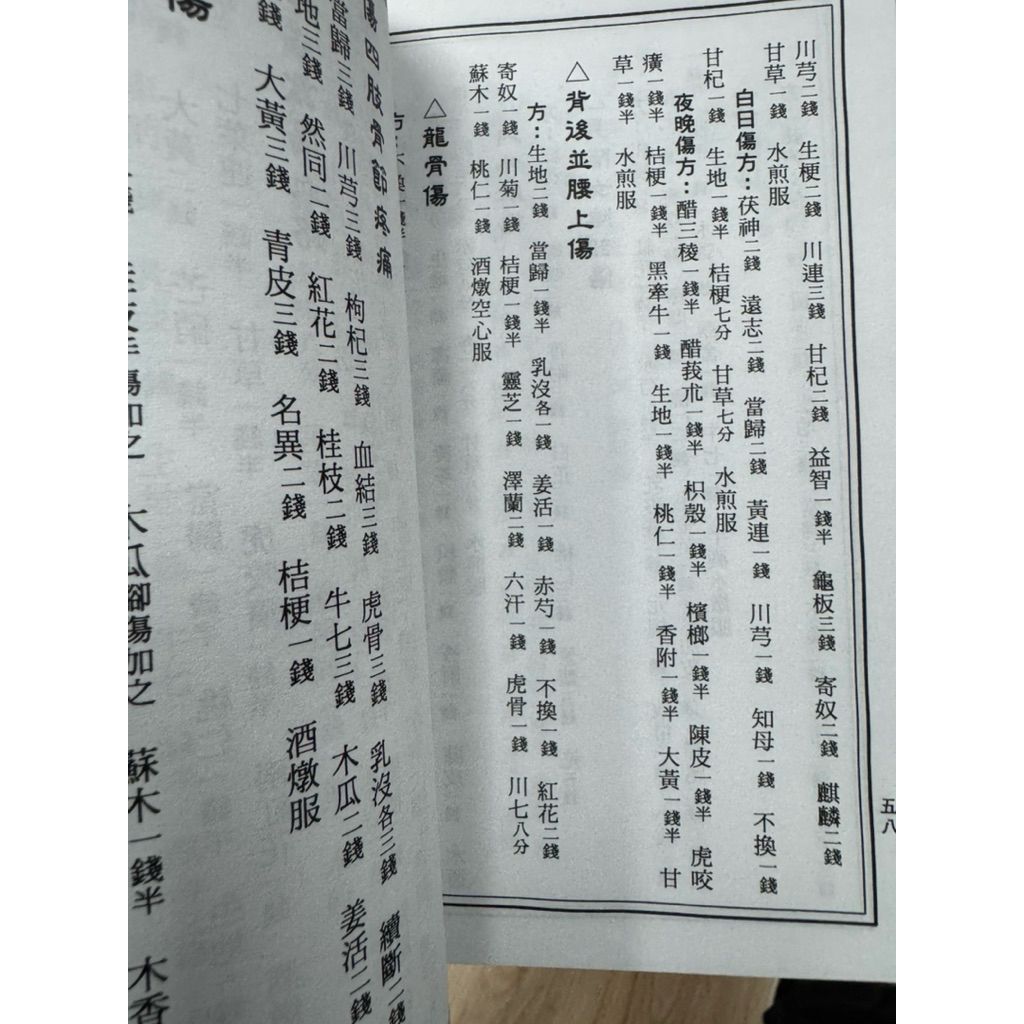 川芎二錢 生梗二錢 川連三錢 甘杞二錢 益智一錢半 龜板三錢 寄奴二錢 麒麟二錢
甘草一錢 水煎服
白日傷方：茯神二錢 遠志二錢 當歸二錢 黃連一錢 川芎一錢 知母一錢 不換一錢
甘杞一錢 生地一錢半 桔梗七分 甘草七分 水煎服
夜晚傷方：醋三稜一錢半 醋莪朮一錢半 枳殼一錢半 檳榔一錢半 陳皮一錢半 虎咬
癀一錢半 桔梗一錢半 黑牽牛一錢 生地一錢半 桃仁一錢半 香附一錢半 大黃一錢半 甘
草一錢半 水煎服
△背後並腰上傷
方：生地二錢 當歸一錢半 乳沒各一錢 姜活一錢 赤芍一錢 不換一錢 紅花二錢
寄奴一錢 川菊一錢 桔梗一錢半 靈芝一錢 澤蘭二錢 六汗一錢 虎骨一錢 川七八分
蘇木一錢 桃仁一錢 酒燉空心服
△龍骨傷
五八
傷四肢骨節疼痛
當歸三錢 川芎三錢 枸杞三錢 血結三錢 虎骨三錢 乳沒各三錢 續斷二錢
地三錢 然同二錢 紅花二錢 桂枝二錢 牛七三錢 木瓜二錢 姜活二錢
錢 大黃三錢 青皮三錢 名異二錢 桔梗一錢 酒燉服
傷
手傷加之 木瓜腳傷加之 蘇木一錢半 木香